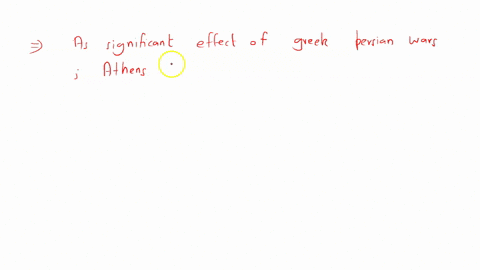 ⇒ As significant effect of greek persian wars
; Athens